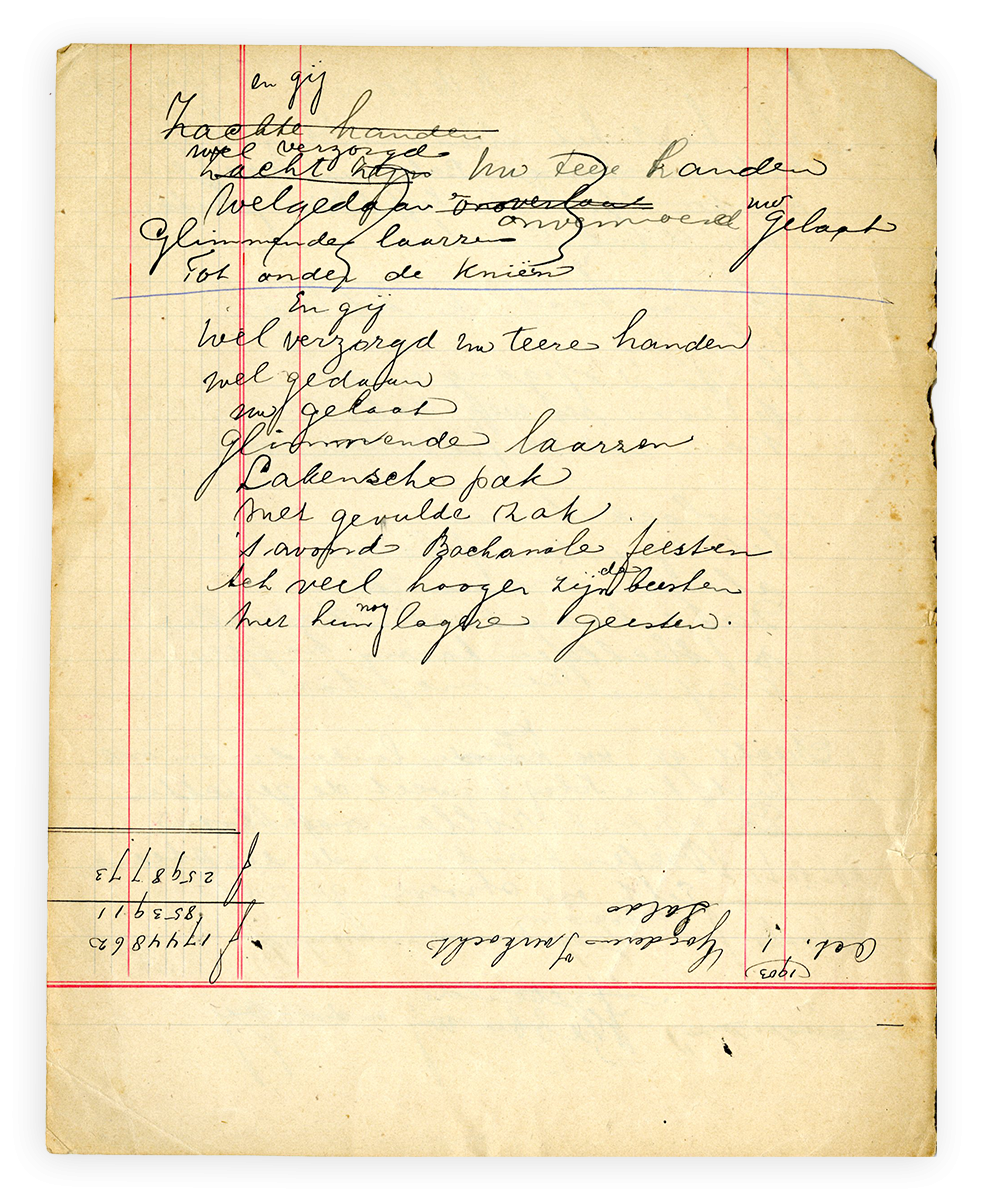 en gij
Zachte handen
wel verzorgd
Zacht zijn uw teere handen
Welgedaan onvermoeid uw gelaat
Glimmende laarzen
Tot onder de Kniën
En gij
Wel verzorgd uw teere handen
wel gedaan
uw gelaat
glimmende laarzen
Lakensche pak
met gevulde zak.
's avond Bachanale feesten
Ach veel hooger zijn de beesten
Met hun nog lagere geesten.
1903
Oct. 1 Goederen Inverkocht f 1744862
Saldo 853911
f 2598773